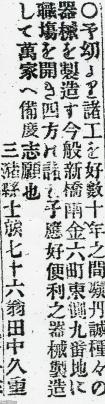 〇予幼ヨリ諸工を好数十年之間凝丹誠種々の
器械を製造す今般新橋南金六町東側九番地に
職場を開き四方の託に予應好便利之器械製造
して萬家へ備度志願也
三潴縣士族七十六翁田中久重